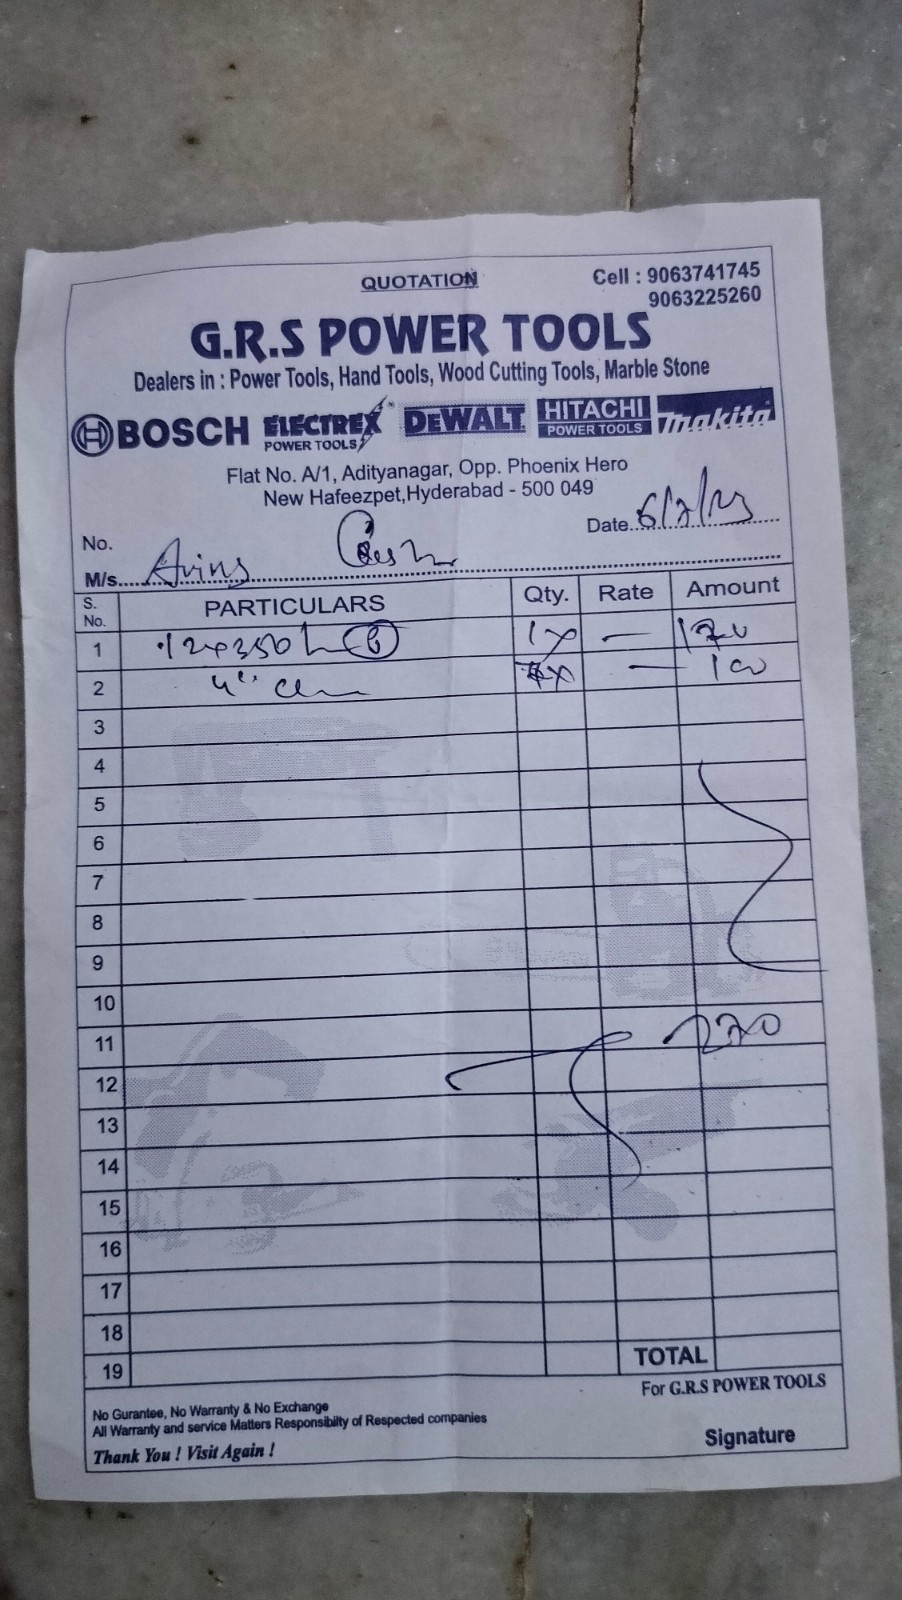 QUOTATION
Cell : 9063741745
9063225260
G.R.S POWER TOOLS
Dealers in : Power Tools, Hand Tools, Wood Cutting Tools, Marble Stone
BOSCH ELECTREX POWER TOOLS DEWALT HITACHI POWER TOOLS makita
Flat No. A/1, Adityanagar, Opp. Phoenix Hero
New Hafeezpet,Hyderabad - 500 049
Date
No.
Cash
M/s.
S. No. PARTICULARS Qty. Rate Amount
1 12x350 170
2 4" 100
3
4
5
6
7
8
9
10
11 270
12
13
14
15
16
17
18
19 TOTAL
For G.R.S POWER TOOLS
No Gurantee, No Warranty & No Exchange
All Warranty and service Matters Responsibilty of Respected companies
Thank You ! Visit Again !
Signature